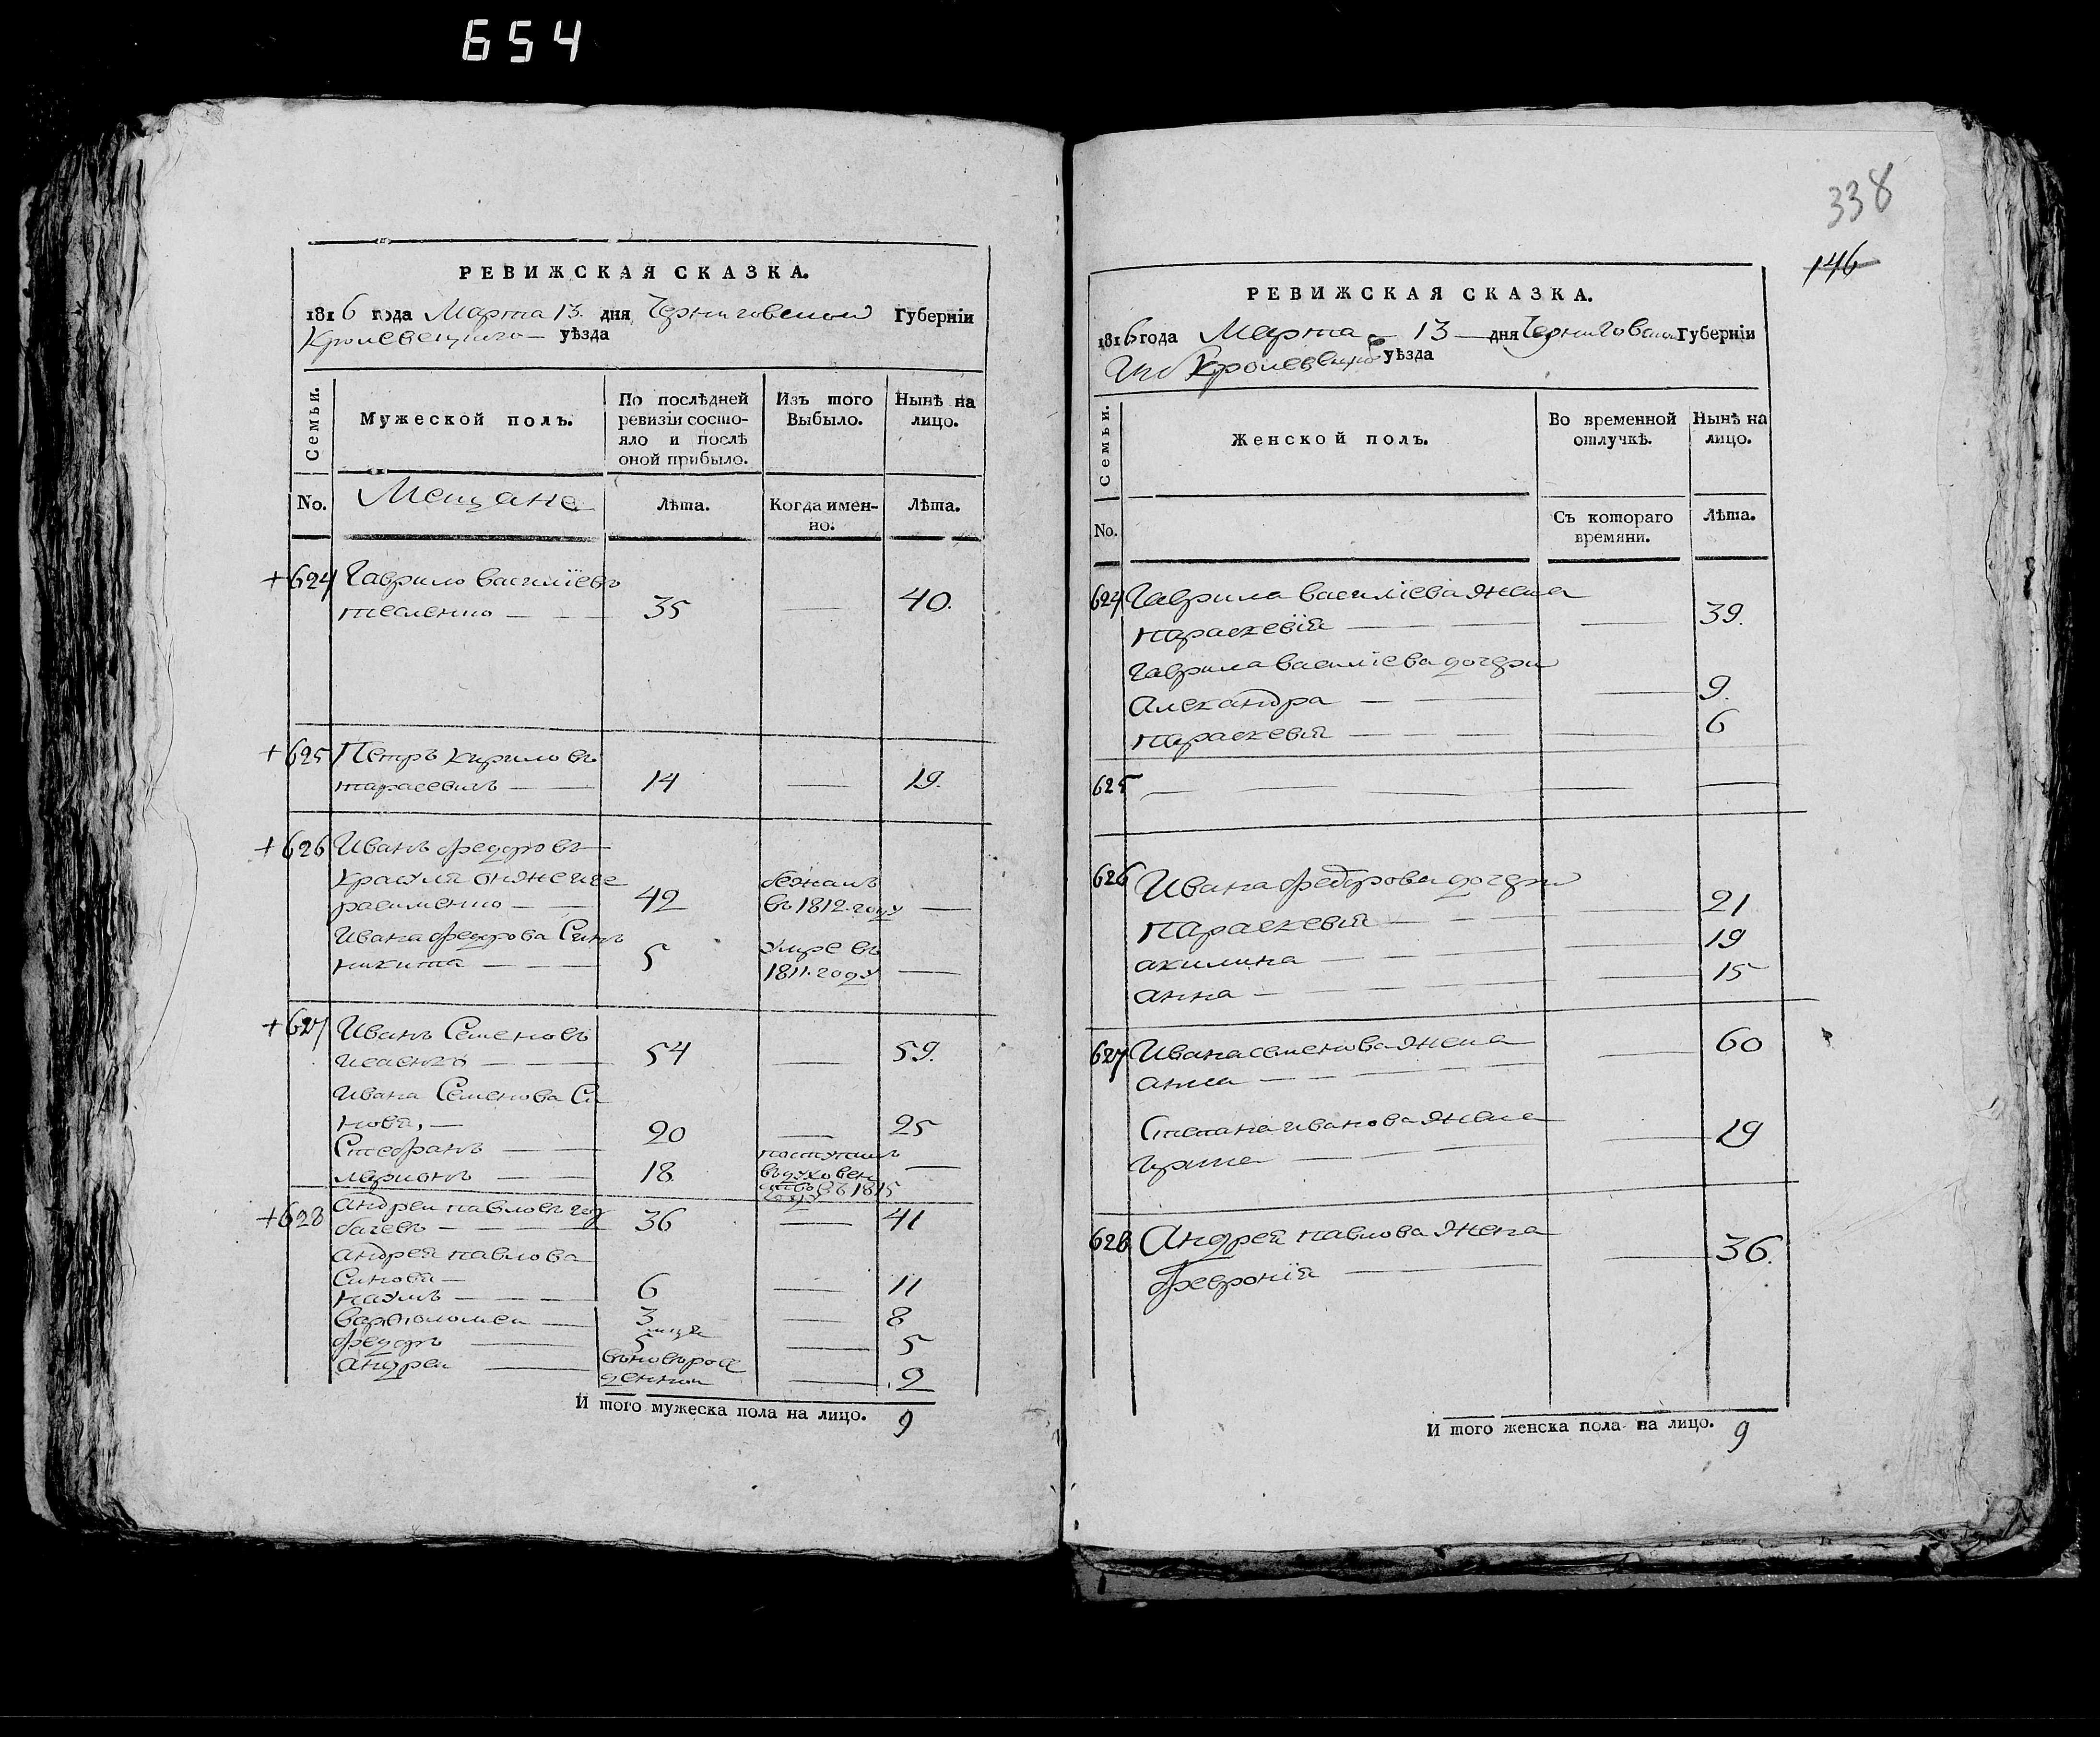 654
РЕВИЖСКАЯ СКАЗКА.
1816 года Марта 13. дня Черниговской Губерніи
Кролевецкаго уѣзда
Семьи.
Мужеской полъ.
По послѣдней ревизіи состояло и послѣ оной прибыло.
Изъ того Выбыло.
Нынѣ на лицо.
No.
Мещане
Лѣта.
Когда именно.
Лѣта.
+624 Гаврило василіевъ
тесленко — 35 — 40.
+625 Петръ кириловъ
тарасевичъ — 14 — 19.
+626 Иванъ федоровъ
42 бежалъ въ 1812. году —
Ивана федорова Синъ
никита — 5 умре въ 1811. году —
+627 Иванъ Семеновъ
исаенко — 54 — 59.
Ивана Семенова Си
новя, —
Стефанъ — 20 — 25
ларионъ — 18. поступилъ въ духовен ство въ 1815 году —
+628 Андрей павловъ
36 — 41
андрея павлова
Синовя —
наумъ — 6 — 11
варфоломей — 3 — 8
федоръ — 5 — 5
андрей — въновърож денни — 2
И того мужеска пола на лицо. 9
338
146
РЕВИЖСКАЯ СКАЗКА.
1816 года Марта 13 дня Черниговской Губерніи
Кролевецкого уѣзда
Семьи.
Женской полъ.
Во временной отлучкѣ.
Нынѣ на лицо.
No.
Съ котораго времяни.
Лѣта.
624 Гаврила василіева жена
параскевія — — 39.
Гаврила василіева дочери
Александра — — 9.
параскевія — — 6
625 — — —
626 Ивана федорова дочери
параскевія — — 21
акилина — — 19
анна — — 15
627 Ивана семенова жена
анна — — 60
Степана иванова жена
ирина — — 19
628 Андрея павлова жена
февронія — — 36.
И того женска пола на лицо. 9